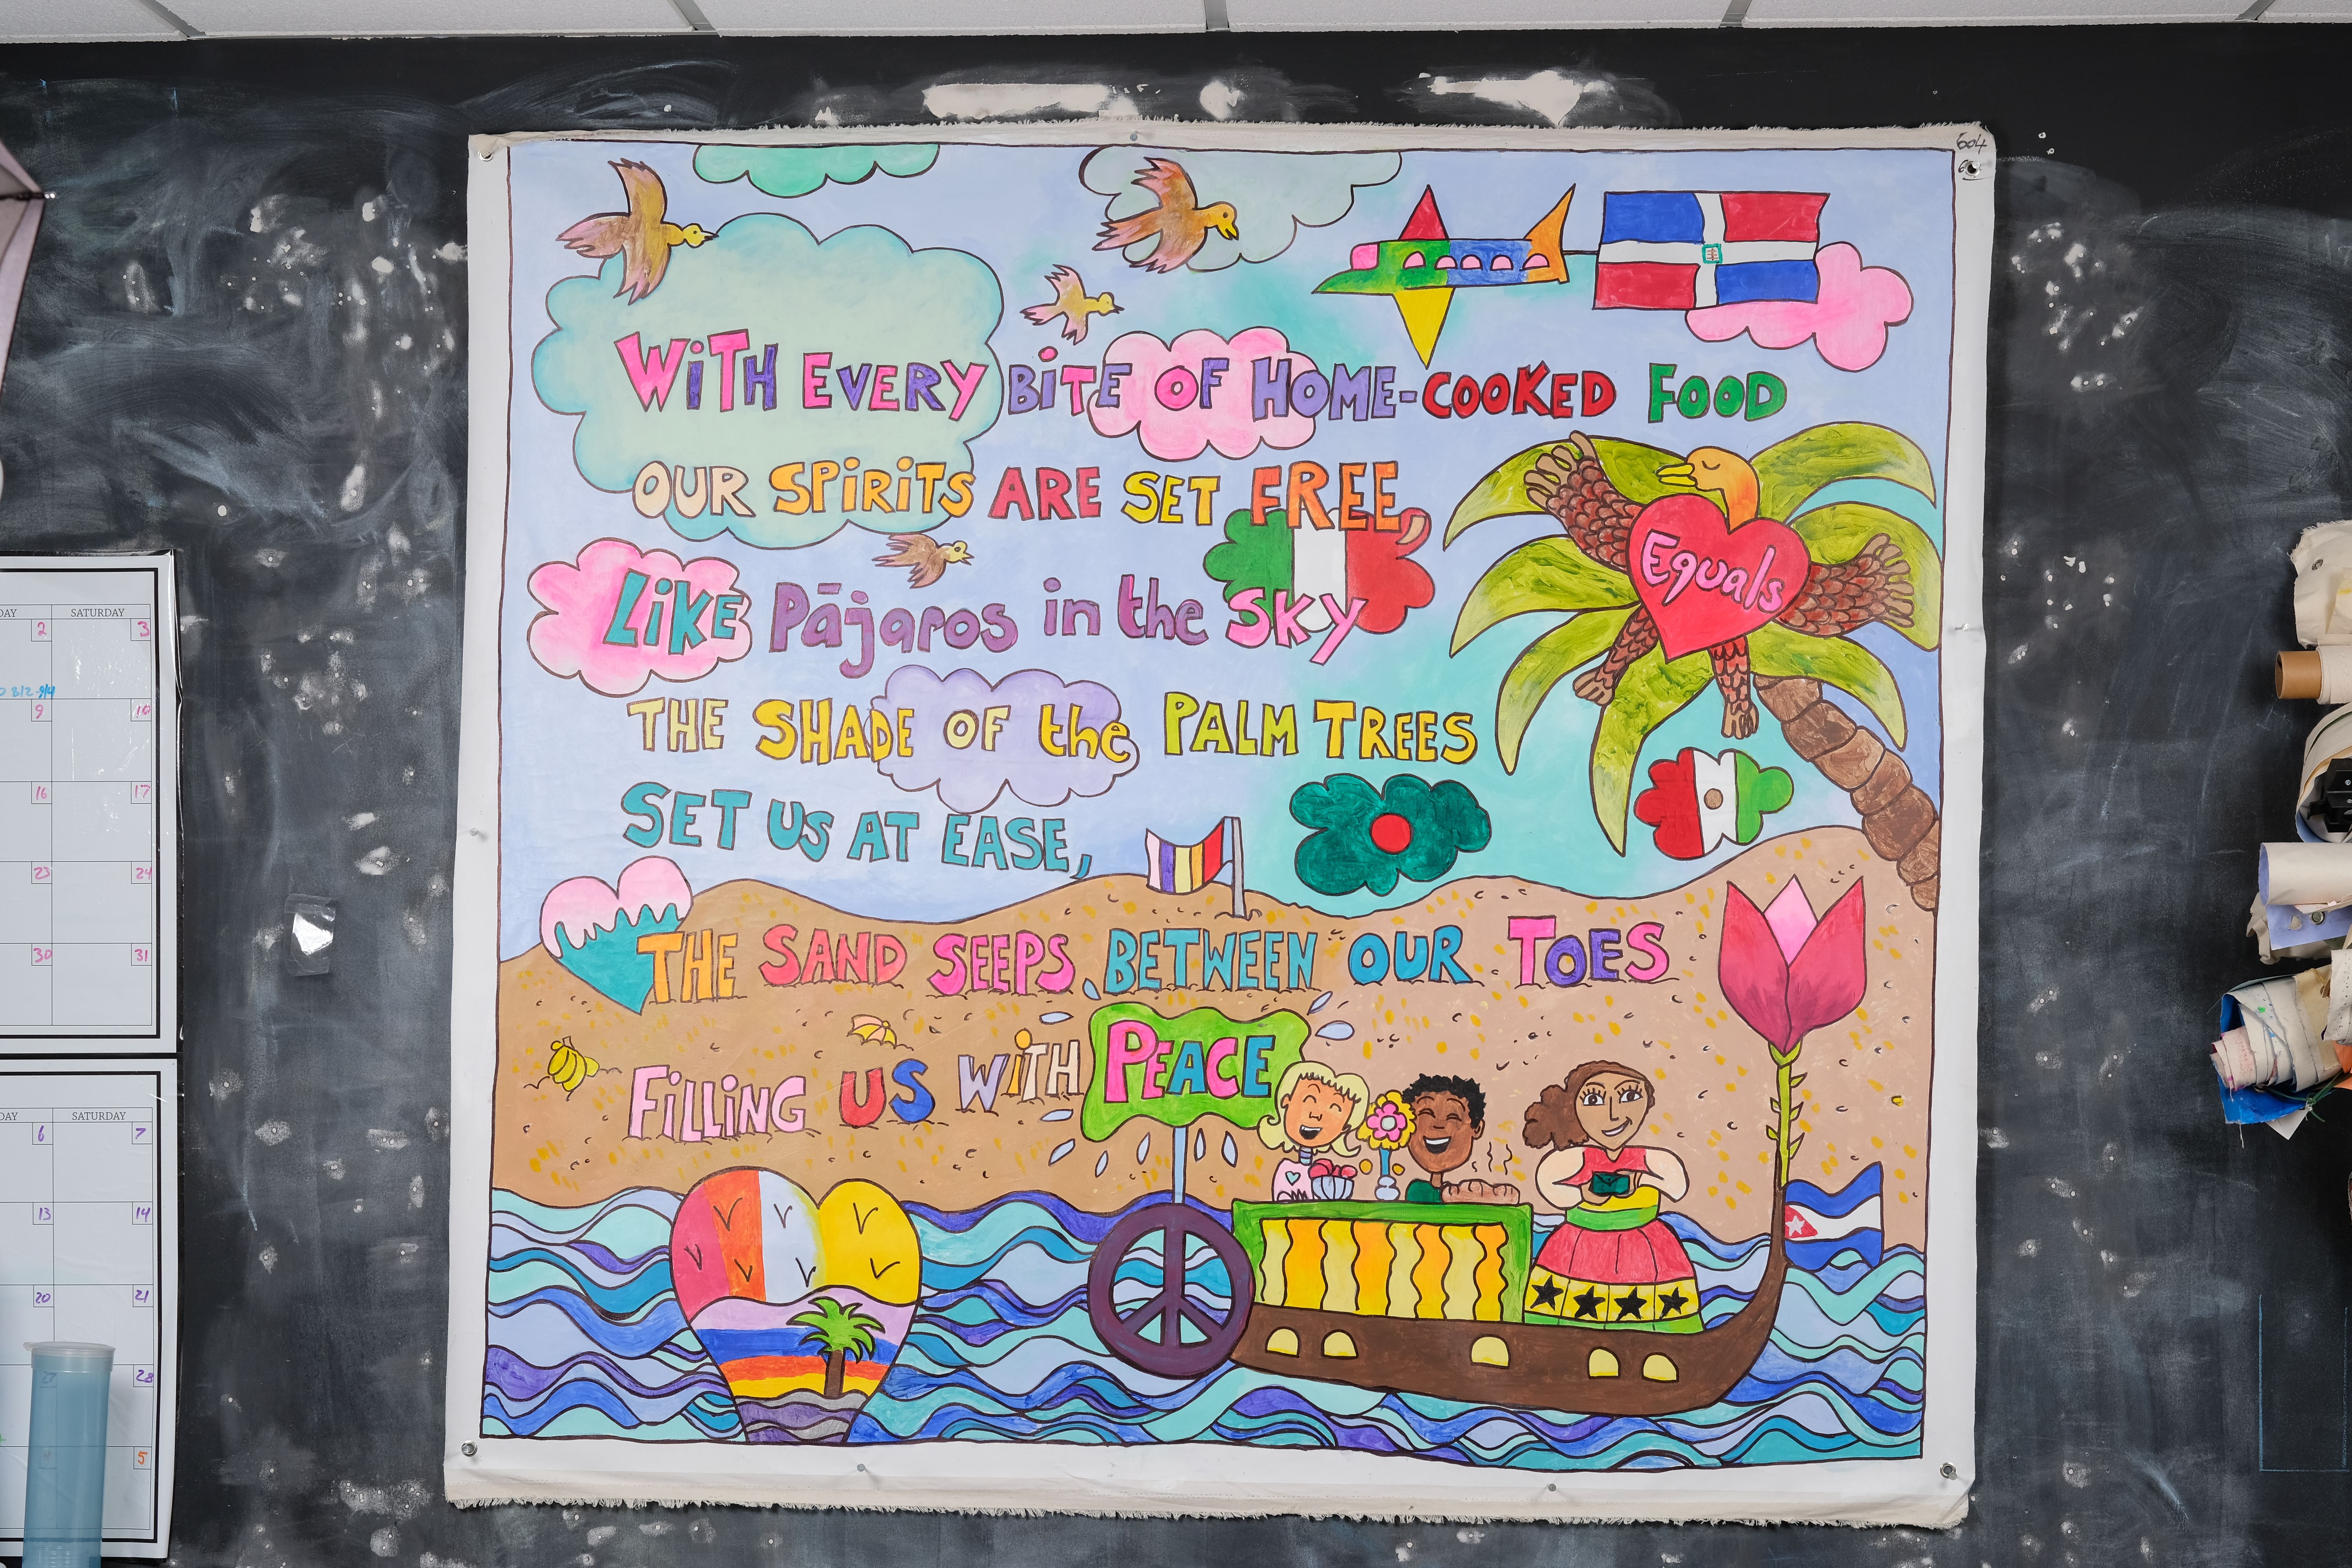 604
WiTH EVERY BiTE OF HOME-COOKED FOOD
OUR SPiRiTS ARE SET FREE,
Equals
LiKE Pājaros in the SKY
THE SHADE OF the PALM TREES
SET US AT EASE,
THE SAND SEEPS BETWEEN OUR TOES
FiLLiNG US WiTH PEACE
SATURDAY
2 3
9 10
16 17
23 24
30 31
SATURDAY
6 7
13 14
20 21
27 28
5